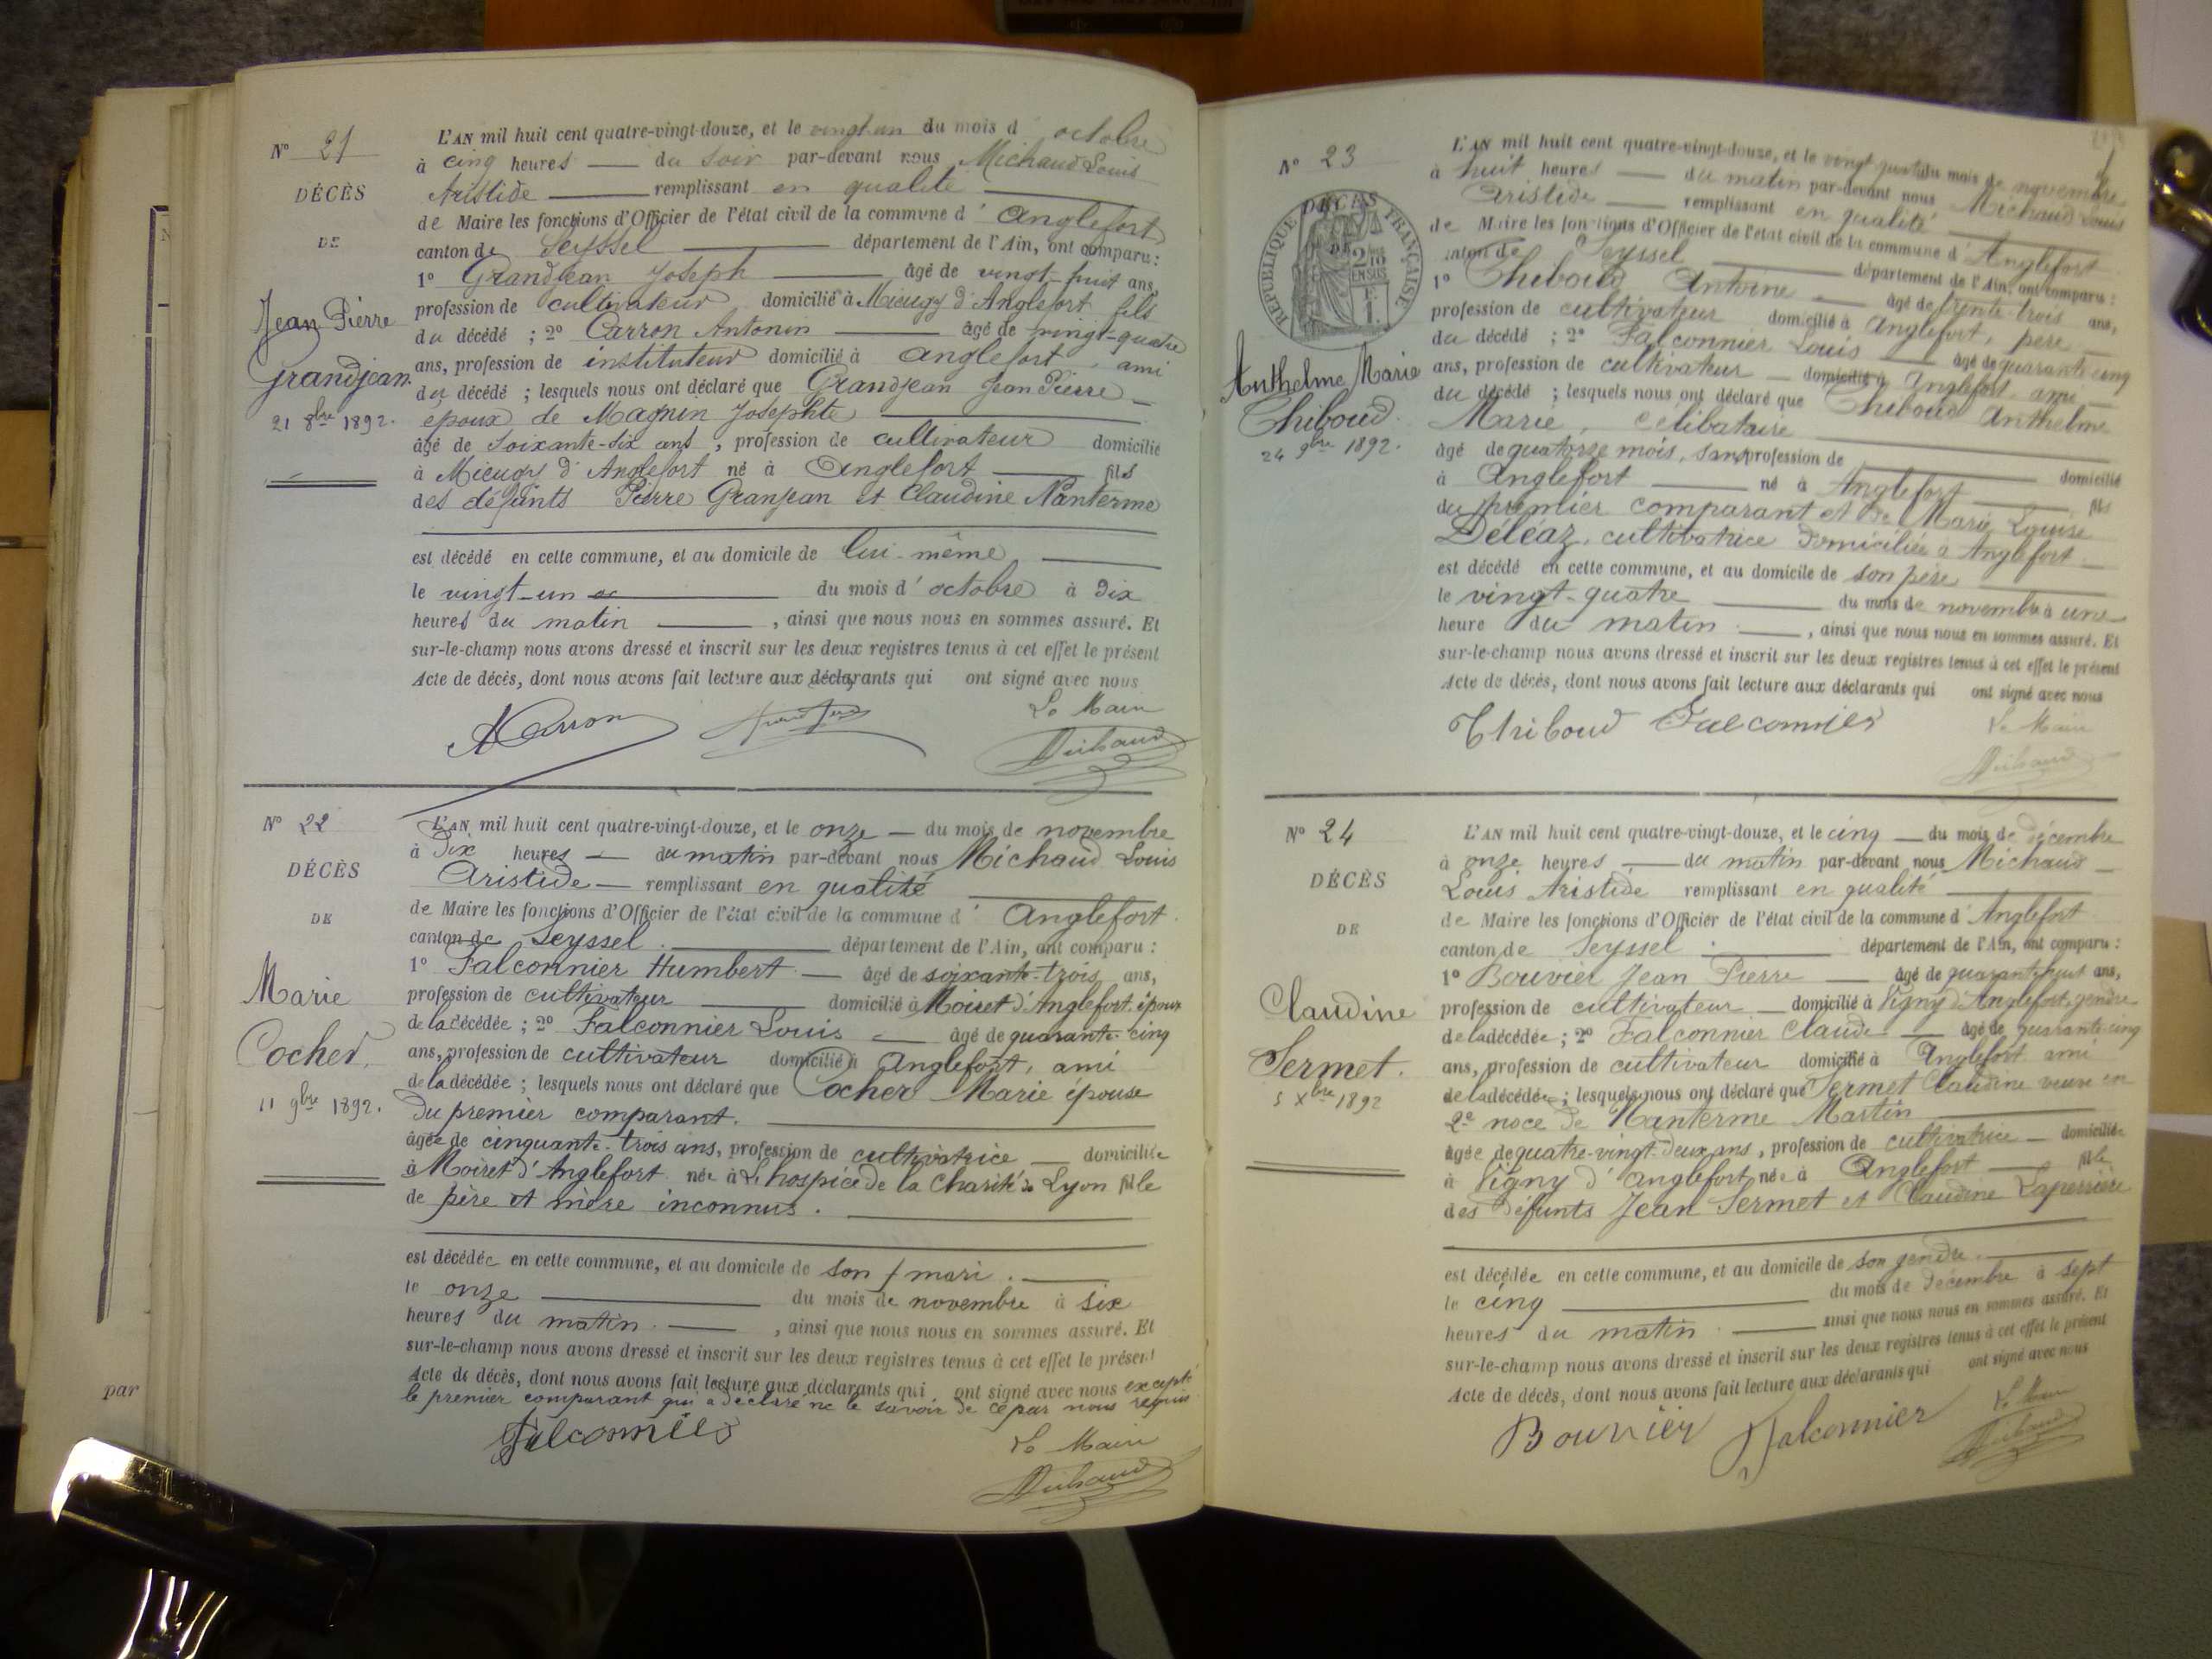 N° 21
DÉCÈS
DE
Jean Pierre
Grandjean
21 8bre 1892.
L'AN mil huit cent quatre-vingt-douze, et le vingt-un du mois d'octobre
à cinq heures — du soir par-devant nous Michaud Louis
Aristide — remplissant en qualité
de Maire les fonctions d'Officier de l'état civil de la commune d'Anglefort
canton de Seyssel — département de l'Ain, ont comparu :
1° Grandjean Joseph — âgé de vingt-huit ans,
profession de cultivateur domicilié à Mieugy d'Anglefort fils
du décédé ; 2° Carron Antonin — âgé de vingt-quatre
ans, profession de instituteur domicilié à Anglefort, ami
du décédé ; lesquels nous ont déclaré que Grandjean Jean Pierre —
époux de Magnin Josephte —
âgé de soixante-six ans, profession de cultivateur domicilié
à Mieugy d'Anglefort né à Anglefort — fils
des défunts Pierre Granjean et Claudine Nanterme
est décédé en cette commune, et au domicile de lui-même —
le vingt-un — du mois d'octobre à dix
heures du matin — , ainsi que nous nous en sommes assuré. Et
sur-le-champ nous avons dressé et inscrit sur les deux registres tenus à cet effet le présent
Acte de décès, dont nous avons fait lecture aux déclarants qui ont signé avec nous
Le Maire
ACarron
Michaud
N° 22
DÉCÈS
DE
Marie
Cocher.
11 9bre 1892.
L'AN mil huit cent quatre-vingt-douze, et le onze — du mois de novembre
à dix heures — du matin par-devant nous Michaud Louis
Aristide — remplissant en qualité
de Maire les fonctions d'Officier de l'état civil de la commune d'Anglefort.
canton de Seyssel. — département de l'Ain, ont comparu :
1° Falconnier Humbert. — âgé de soixante-trois ans,
profession de cultivateur — domicilié à Moiret d'Anglefort, époux
de la décédée ; 2° Falconnier Louis — âgé de quarante-cinq
ans, profession de cultivateur domicilié à Anglefort, ami
de la décédée ; lesquels nous ont déclaré que Cocher Marie épouse
du premier comparant. —
âgée de cinquante-trois ans, profession de cultivatrice — domiciliée
à Moiret d'Anglefort née à L'hospice de la Charité de Lyon fille
de père et mère inconnus. —
est décédée en cette commune, et au domicile de son mari. —
le onze — du mois de novembre à six
heures du matin. — , ainsi que nous nous en sommes assuré. Et
sur-le-champ nous avons dressé et inscrit sur les deux registres tenus à cet effet le présent
Acte de décès, dont nous avons fait lecture aux déclarants qui ont signé avec nous excepté
le premier comparant qui a déclaré ne le savoir de ce par nous requis
Falconnier
Le Maire
Michaud
par
N° 23
DÉCÈS
DE
RÉPUBLIQUE FRANÇAISE
2/10 EN SUS
F. 1.
Anthelme Marie
Thiboud.
24 9bre 1892.
L'AN mil huit cent quatre-vingt-douze, et le vingt-quatre du mois de novembre
à huit heures — du matin par-devant nous Michaud Louis
Aristide — remplissant en qualité
de Maire les fonctions d'Officier de l'état civil de la commune d'Anglefort
canton de Seyssel — département de l'Ain, ont comparu :
1° Thiboud Antoine — âgé de trente-trois ans,
profession de cultivateur domicilié à Anglefort, père —
du décédé ; 2° Falconnier Louis — âgé de quarante-cinq
ans, profession de cultivateur — domicilié à Anglefort ami —
du décédé ; lesquels nous ont déclaré que Thiboud Anthelme
Marie, célibataire —
âgé de quatorze mois, sans profession de — domicilié
à Anglefort — né à Anglefort — fils
du premier comparant et de Marie Louise
Déléaz, cultivatrice domiciliée à Anglefort. —
est décédé en cette commune, et au domicile de son père —
le vingt-quatre — du mois de novembre à une
heure du matin. — , ainsi que nous nous en sommes assuré. Et
sur-le-champ nous avons dressé et inscrit sur les deux registres tenus à cet effet le présent
Acte de décès, dont nous avons fait lecture aux déclarants qui ont signé avec nous
Thiboud Falconnier
Le Maire
Michaud
N° 24
DÉCÈS
DE
Claudine
Sermet.
5 Xbre 1892
L'AN mil huit cent quatre-vingt-douze, et le cinq — du mois de décembre
à onze heures — du matin par-devant nous Michaud —
Louis Aristide remplissant en qualité —
de Maire les fonctions d'Officier de l'état civil de la commune d'Anglefort
canton de Seyssel. — département de l'Ain, ont comparu :
1° Bouvier Jean Pierre — âgé de quarante-huit ans,
profession de cultivateur — domicilié à Vigny d'Anglefort, gendre
de la décédée ; 2° Falconnier Claude — âgé de quarante-cinq
ans, profession de cultivateur domicilié à Anglefort ami
de la décédée ; lesquels nous ont déclaré que Sermet Claudine veuve en
2e noce de Nanterme Martin —
âgée de quatre-vingt-deux ans, profession de cultivatrice — domiciliée
à Vigny d'Anglefort, née à Anglefort — fille
des défunts Jean Sermet et Claudine Laperrière
est décédée en cette commune, et au domicile de son gendre. —
le cinq — du mois de décembre à sept
heures du matin. — ainsi que nous nous en sommes assuré. Et
sur-le-champ nous avons dressé et inscrit sur les deux registres tenus à cet effet le présent
Acte de décès, dont nous avons fait lecture aux déclarants qui ont signé avec nous
Bouvier Falconnier
Le Maire
Michaud